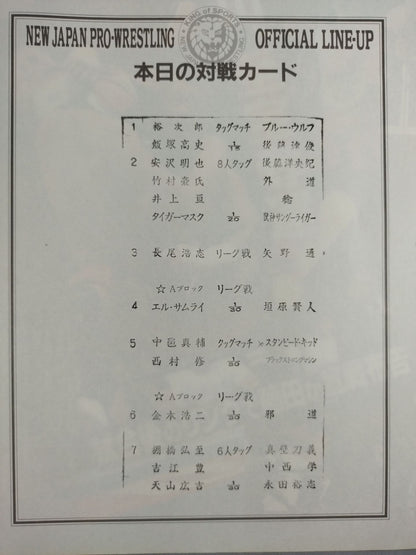 KING OF SPORTS
NEW JAPAN PRO-WRESTLING OFFICIAL LINE-UP
本日の対戦カード
1 裕次郎 タッグマッチ ブルー・ウルフ
飯塚高史 1/15 後藤達俊
2 安沢明也 8人タッグ 後藤洋央紀
竹村豪氏 外道
井上亘 稔
タイガーマスク 1/20 獣神サンダーライガー
3 長尾浩志 リーグ戦 矢野通
☆Aブロック リーグ戦
4 エル・サムライ 1/30 垣原賢人
5 中邑真輔 タッグマッチ × スタンピード・キッド
西村修 1/30 ブラックストロングマシン
☆Aブロック リーグ戦
6 金本浩二 1/30 邪道
7 棚橋弘至 6人タッグ 真壁刀義
吉江豊 中西学
天山広吉 1/30 永田裕志